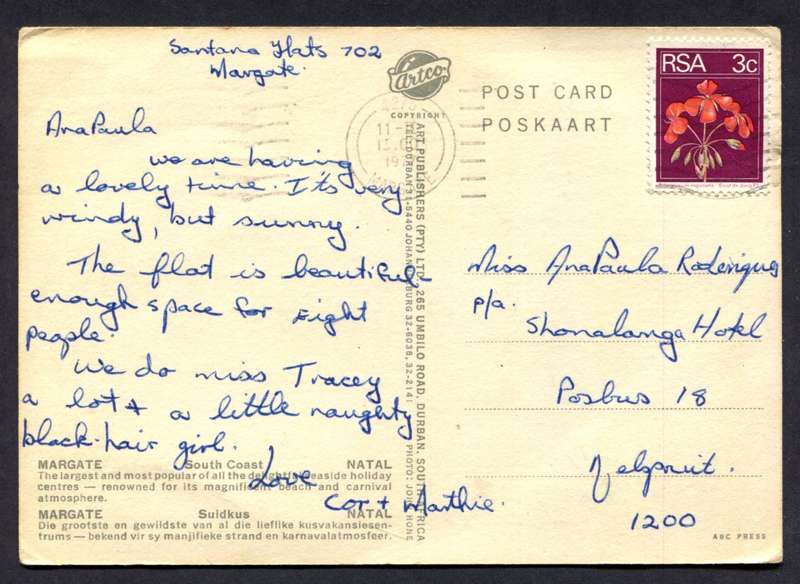 Santana Flats 702
Margate.
AnaPaula
we are having
a lovely time. It's very
windy, but sunny.
The flat is beautiful
enough space for Eight
people.
We do miss Tracey
a lot + a little naughty
black-hair girl.
Love
Cor + Marthie.
MARGATE South Coast NATAL
The largest and most popular of all the delightful seaside holiday
centres — renowned for its magnificent beach and carnival
atmosphere.
MARGATE Suidkus NATAL
Die grootste en gewildste van al die lieflike kusvakansiesen-
trums — bekend vir sy manjifieke strand en karnavalatmosfeer.
Artco
COPYRIGHT
ART PUBLISHERS (PTY) LTD., 265 UMBILO ROAD, DURBAN, SOUTH AFRICA
TEL: DURBAN 31-5440 JOHANNESBURG 32-6038, 32-2141 PHOTO: JOHN HONE
POST CARD
POSKAART
RSA 3c
Miss AnaPaula Roderigues
p/a.
Shonalanga Hotel
Posbus 18
Nelspruit.
1200
ABC PRESS